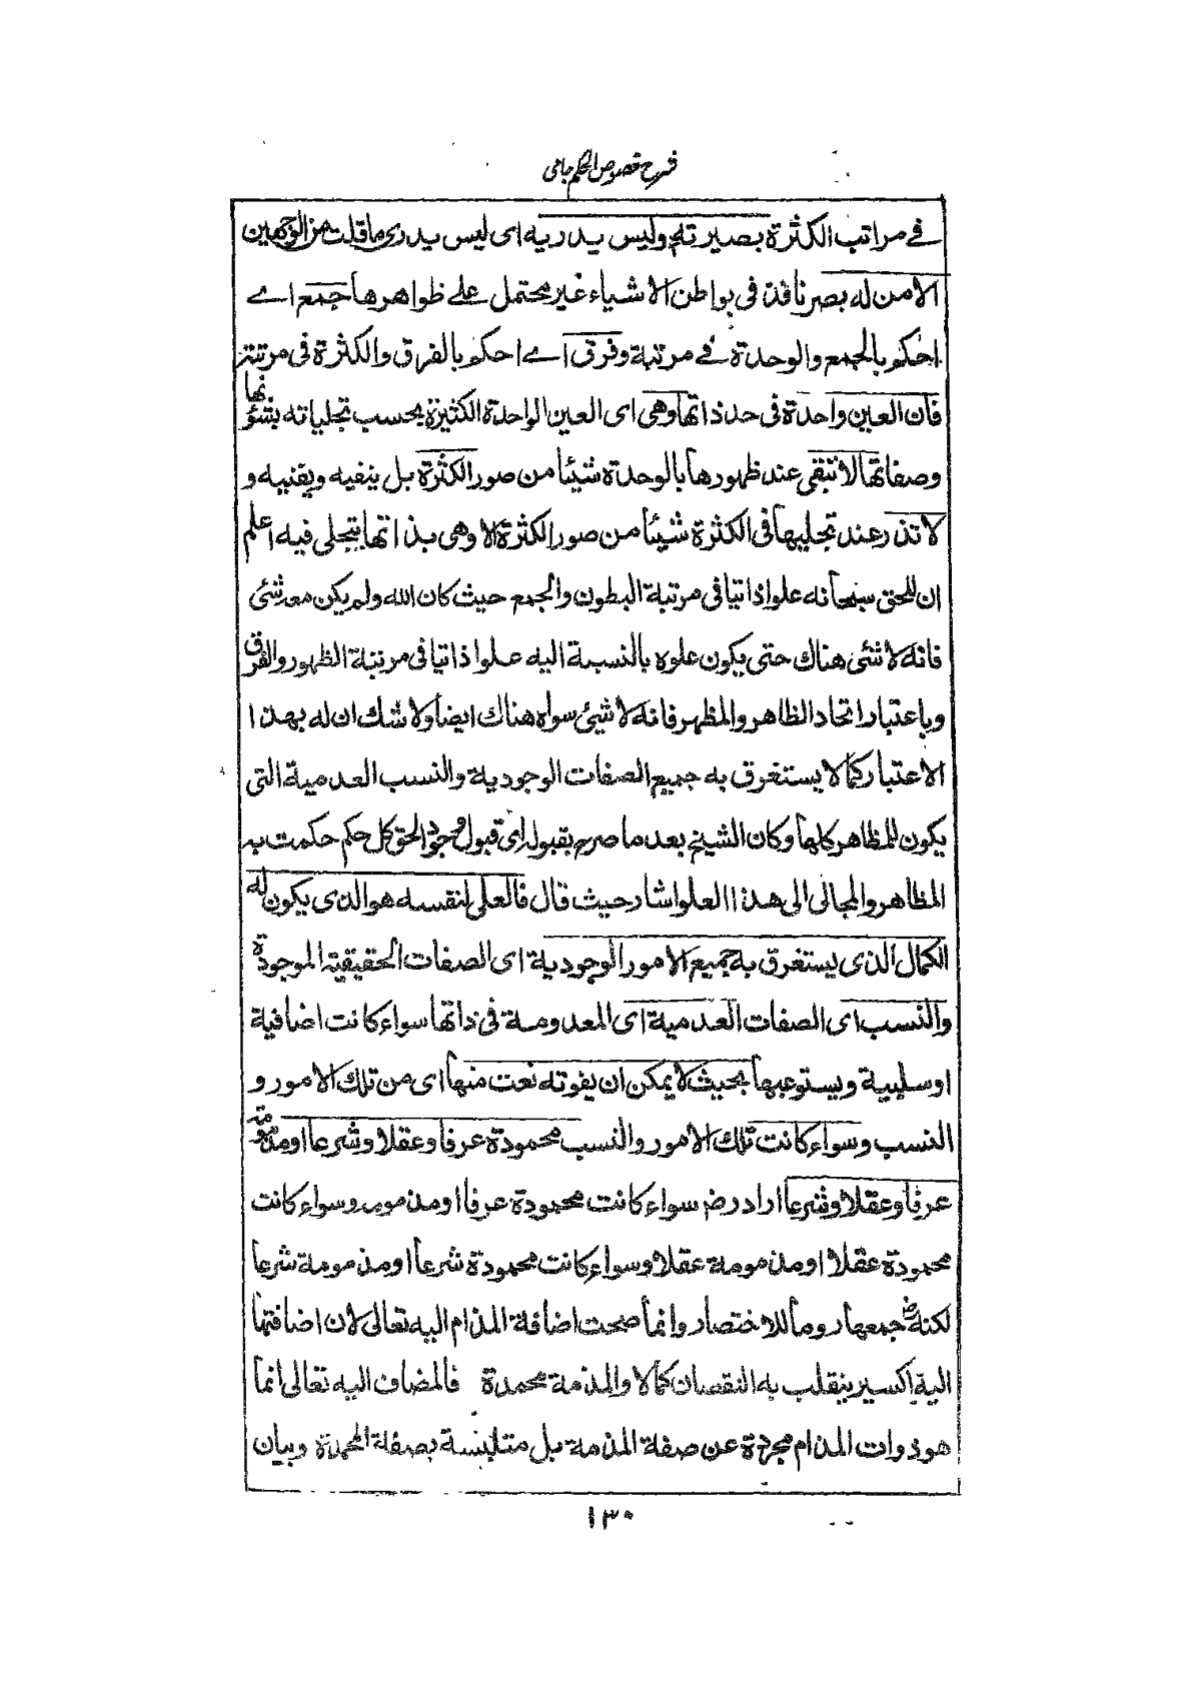 شرح فصوص الحكم جامی
فے مراتب الكثرة بصيرته وليس يدريه اى ليس يدرى ما قلت من الوجهين
الا من له بصر نافذ فى بواطن الاشياء غير محتمل على ظواهرها جمع اے
احكم بالجمع والوحدة فے مرتبة وفرق اے احكم بالفرق والكثرة فى مرتبة
فان العين واحدة فى حد ذاتها وهى اى العين الواحدة الكثيرة بحسب تجلياته بشؤنها
وصفاتها لا تبقى عند ظهورها بالوحدة شيئا من صور الكثرة بل ينفيه ويفنيه و
لا تذر عند تجليها فى الكثرة شيئا من صور الكثرة الا وهى بذاتها تتجلى فيه اعلم
ان للحق سبحانه علوا ذاتيا فى مرتبة البطون والجمع حيث كان الله ولم يكن معه شئ
فانه لا شئ هناك حتى يكون علوه بالنسبة اليه علوا ذاتيا فى مرتبة الظهور والفرق
وباعتبار اتحاد الظاهر والمظهر فانه لا شئ سواه هناك ايضا ولا شك ان له بهذا
الاعتبار كمالا يستغرق به جميع الصفات الوجودية والنسب العدمية التى
يكون للمظاهر كلها وكان الشيخ بعد ما صرح بقبوله اى قبول وجود الحق كل حكم حكمت به
المظاهر والمجالى الى هذا العلو اشار حيث قال فالعلى لنفسه هو الذى يكون له
الكمال الذى يستغرق به جميع الامور الوجودية اى الصفات الحقيقية الموجودة
والنسب اى الصفات العدمية اى المعدومة فى ذاتها سواء كانت اضافية
او سلبية ويستوعبها بحيث لا يمكن ان يفوته نعت منها اى من تلك الامور و
النسب وسواء كانت تلك الامور والنسب محمودة عرفا وعقلا وشرعا او مذمومة
عرفا وعقلا وشرعا اراد رض سواء كانت محمودة عرفا او مذمومه وسواء كانت
محمودة عقلا او مذمومة عقلا وسواء كانت محمودة شرعا او مذمومة شرعا
لكنه رض جمعها روما للاختصار وانما صحت اضافة المذام اليه تعالى لان اضافتها
اليه اكسير ينقلب به النقصان كمالا والمذمة محمدة فالمضاف اليه تعالى انما
هو ذوات المذام مجردة عن صفة المذمة بل متلبسة بصفة المحمدة وبيان
١٣٠